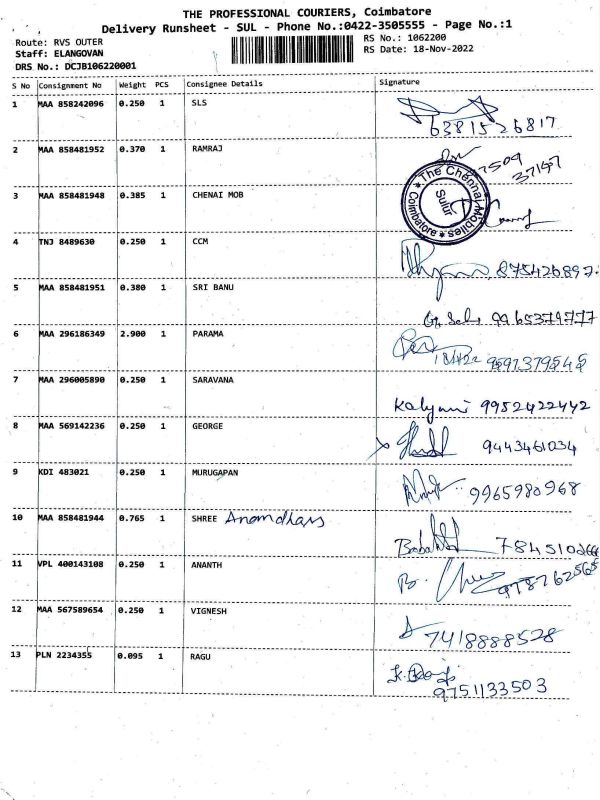 THE PROFESSIONAL COURIERS, Coimbatore
Delivery Runsheet - SUL - Phone No.:0422-3505555 - Page No.:1
Route: RVS OUTER
Staff: ELANGOVAN
DRS No.: DCJB106220001
RS No.: 1062200
RS Date: 18-Nov-2022
S No Consignment No Weight PCS Consignee Details Signature
1 MAA 858242096 0.250 1 SLS
6381526817
2 MAA 858481952 0.370 1 RAMRAJ
37147
3 MAA 858481948 0.385 1 CHENAI MOB
The Chennai Mobiles
Sulur
Coimbatore
4 TNJ 8489630 0.250 1 CCM
875426897
5 MAA 858481951 0.380 1 SRI BANU
9965379777
6 MAA 296186349 2.900 1 PARAMA
9597379545
7 MAA 296005890 0.250 1 SARAVANA
Kalyani 9952422442
8 MAA 569142236 0.250 1 GEORGE
9443461034
9 KDI 483021 0.250 1 MURUGAPAN
9965980968
10 MAA 858481944 0.765 1 SHREE
11 VPL 400143108 0.250 1 ANANTH
B.
12 MAA 567589654 0.250 1 VIGNESH
7418888528
13 PLN 2234355 0.095 1 RAGU
9751133503